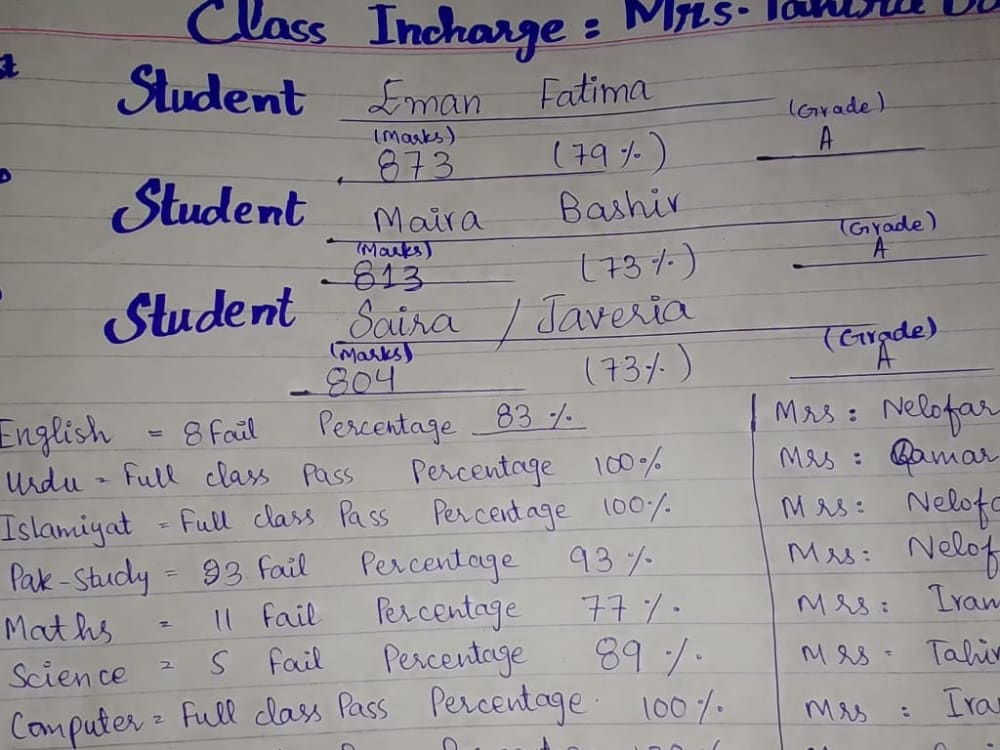 Class Incharge : Mrs. Tahira
st
Student Eman Fatima
(Marks) (Grade)
873 (79%) A
Student Maira Bashir
(Marks) (Grade)
813 (73%) A
Student Saira / Javeria
(Marks) (Grade)
804 (73%) A
English = 8 Fail Percentage 83 % Mrs : Nelofar
Urdu = Full class Pass Percentage 100% Mrs : Qamar
Islamiyat = Full class Pass Percentage 100% Mrs: Nelofa
Pak-Study = Fail Percentage 93 % Mrs: Nelof
Maths = 11 Fail Percentage 77 % Mrs : Iram
Science = 5 Fail Percentage 89 % Mrs = Tahir
Computer = Full class Pass Percentage 100 % Mrs : Ira